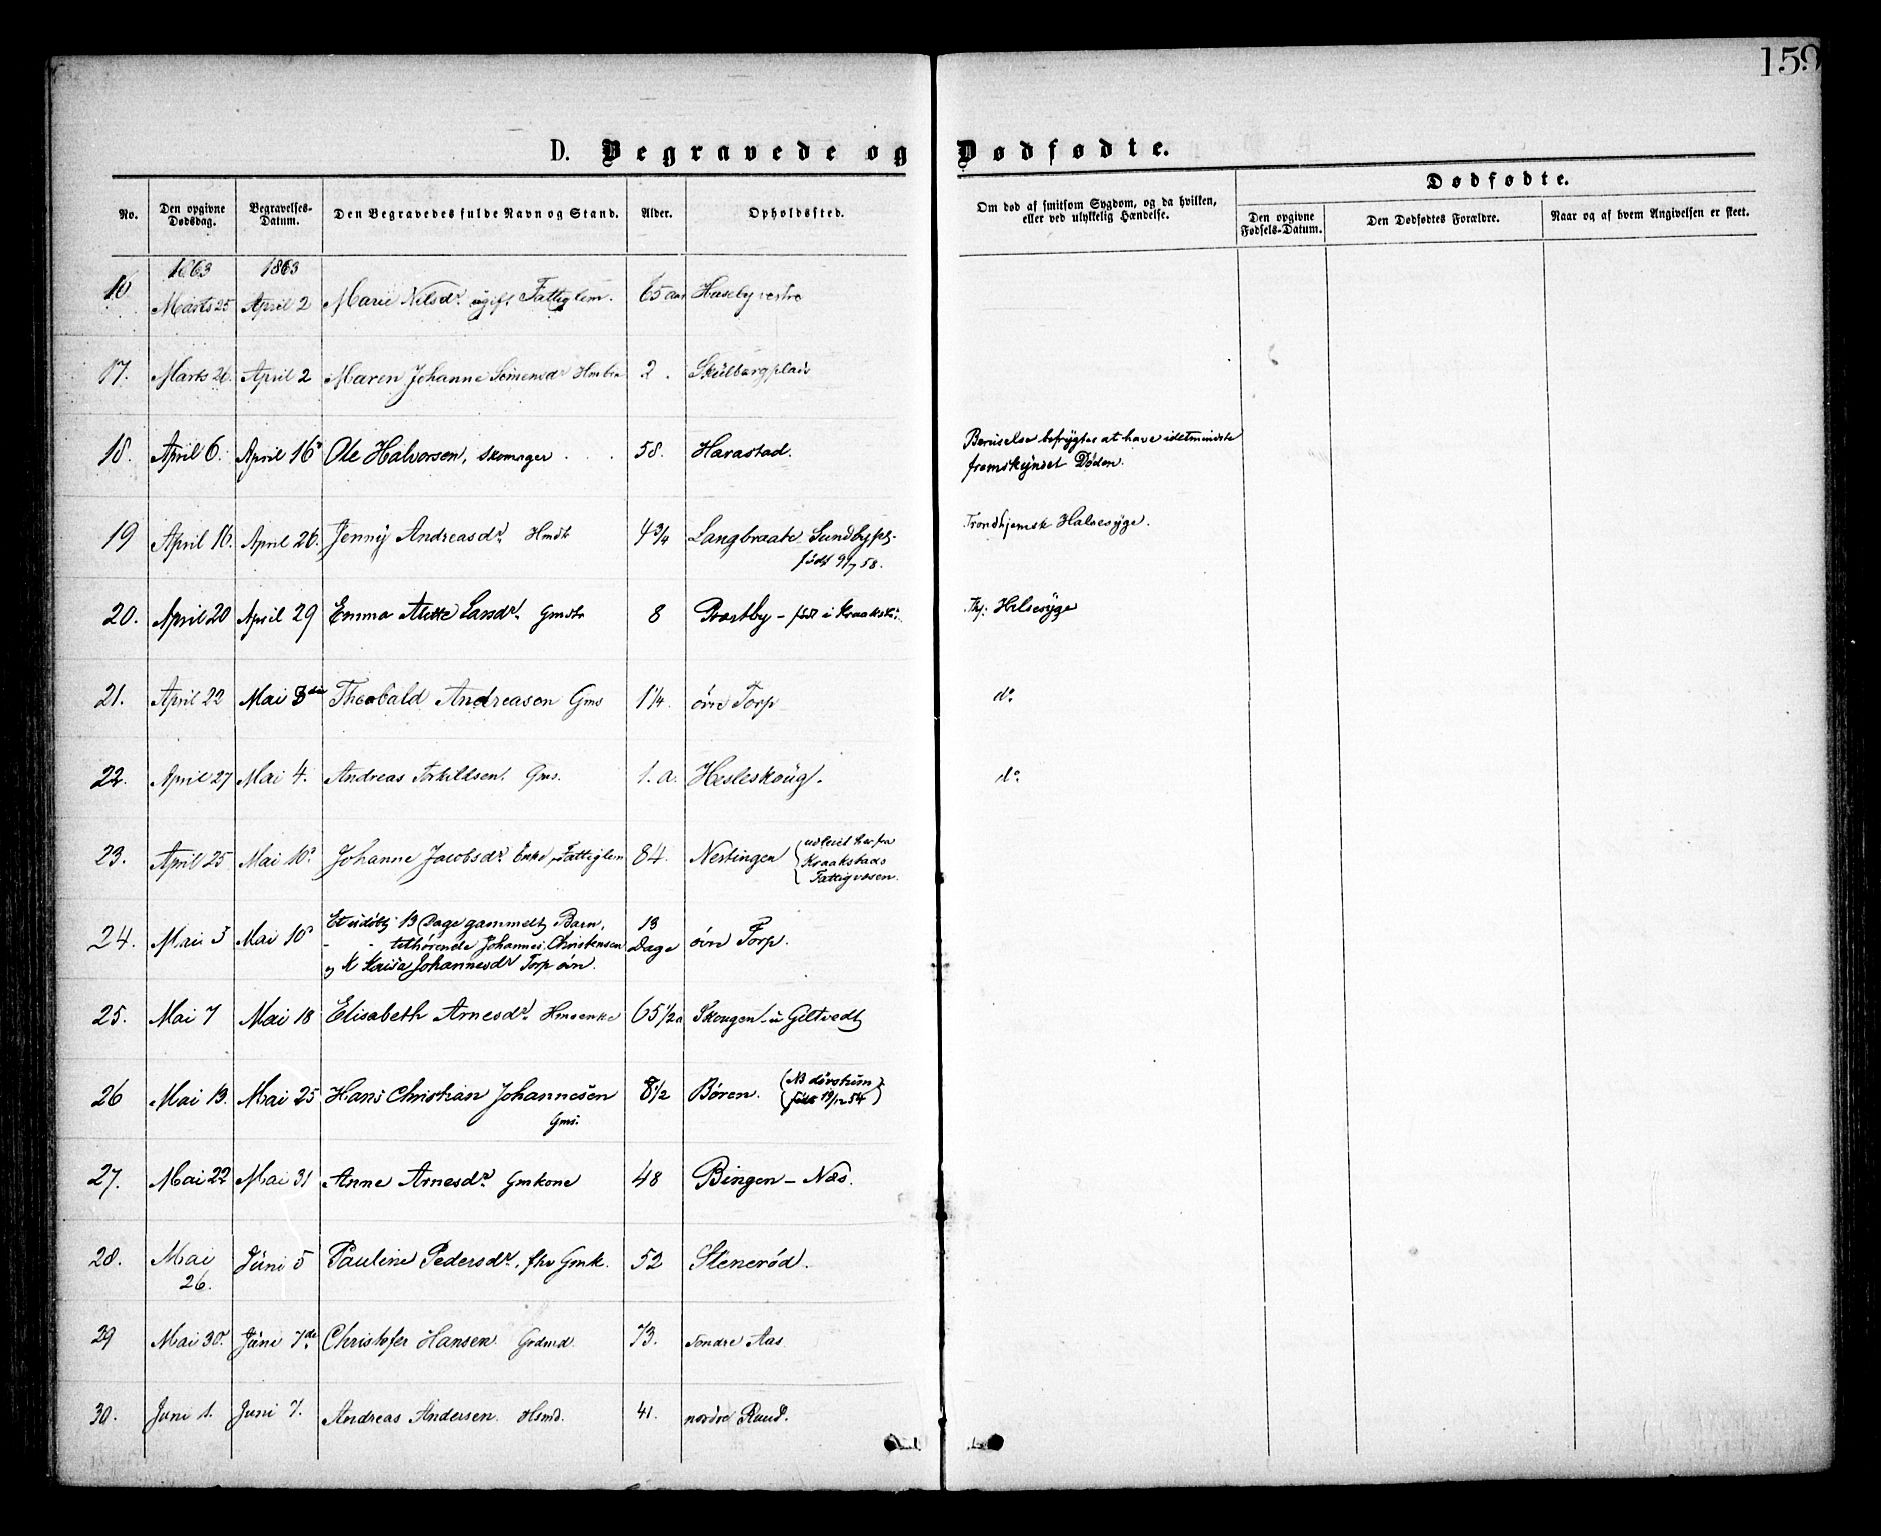 159
D. Begravede og Dødfødte.
No.
Den opgivne Dødsdag.
Begravelses-Datum.
Den Begravedes fulde Navn og Stand.
Alder.
Opholdssted.
Om død af smitsom Sygdom, og da hvilken, eller ved ulykkelig Hændelse.
Dødfødte.
Den opgivne Fødsels-Datum.
Den Dødfødtes Forældre.
Naar og af hvem Angivelsen er skeet.
1863 1863
16 Marts 25 April 2 Marie Nilsdr. ugift Fattiglem. 65 aar Huseby vestre
17. Marts 26. April 2 Maren Johanne Simensdr 2.
18. April 6. April 16 Ole Halvorsen, Skomager 58. Harastad. Beruselse befrygtes at have idetmindste
fremskyndet Døden.
19 April 16. April 26. Jenny Andreasdr. Hmdtr 4 3/4 Langbraate Sundbypl.
født 9/7 58.
Trondhjemsk Halsesyge.
20. April 20 April 29 Emma Alette Larsdr. Gmdtr 8 Præstby - født i Kraakstad Thj: Halsesyge
21. April 22 Mai 3die Theobald Andreasen Gms 1 1/4 øvre Torp do
22. April 27 Mai 4. Andreas Torkildsen. Gms. 1. a. Hesleskoug. do
23. April 25 Mai 10. Johanne Jacobsdr. Enke, Fattiglem 84. Nestingen (udleiet her fra
Kraakstads
Fattigvæsen.
24. Mai 3 Mai 10 Et udøbt 13 Dage gammelt Barn, 13 Dage øvre Torp.
tilhørende Johannes Christensen
og K Kaisa Johannesdr Torp øvr.
25. Mai 7 Mai 18 Elisabeth Arnesdr. Hmsenke 65 1/2 a Skougen u Giltvedt
26 Mai 13. Mai 25 Hans Christian Johannesen 8 1/2 Børen. (NB døvstum)
Gms. (født 19/12 54)
27. Mai 22 Mai 31 Anne Arnesdr. Gmkone 48 Bingen - Næs.
28. Mai 26. Juni 5 Pauline Pedersdr. fhv Gmk. 52 Stenerød.
29 Mai 30. Juni 7de Christofer Hansen. Grdmd. 73. søndre Aas.
30. Juni 1. Juni 7. Andreas Andersen. Hsmd. 41. nordre Rud.